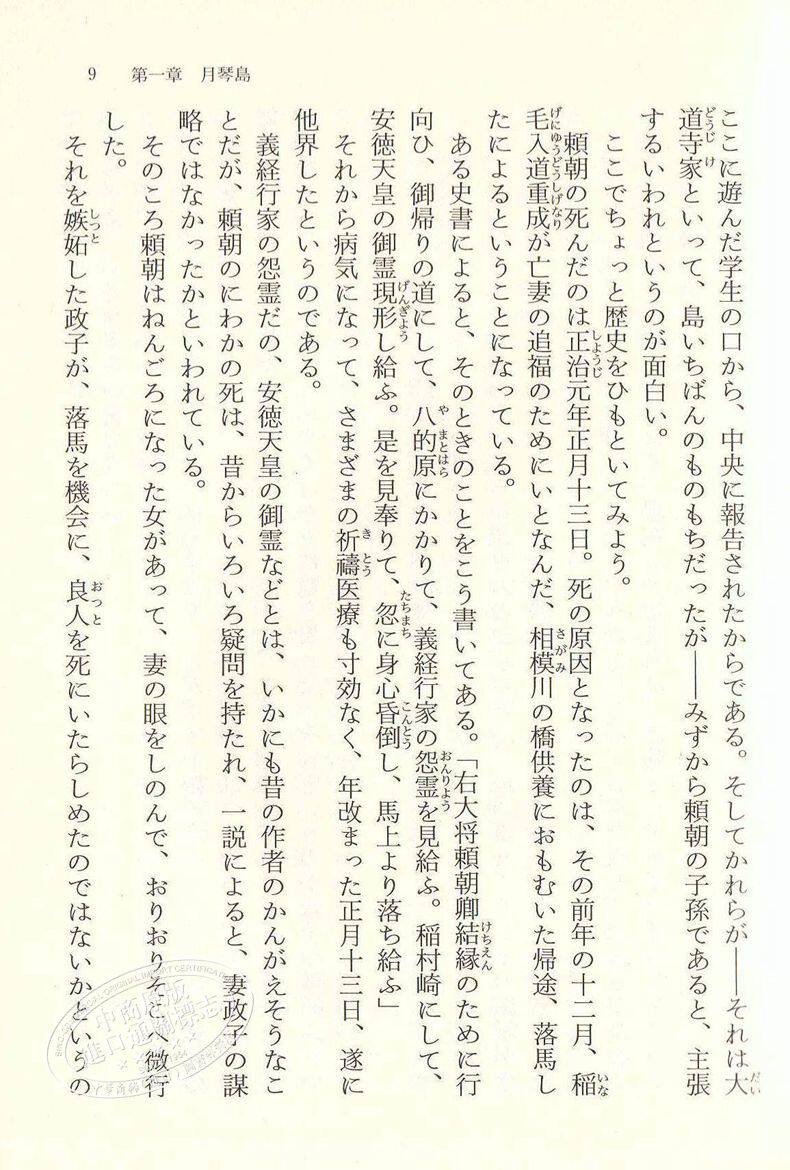 9 第一章 月琴島
ここに遊んだ学生の口から、中央に報告されたからである。そしてかれらが――それは大
道寺家といって、島いちばんのものもちだったが――みずから頼朝の子孫であると、主張
するいわれというのが面白い。
ここでちょっと歴史をひもといてみよう。
頼朝の死んだのは正治元年正月十三日。死の原因となったのは、その前年の十二月、稲
毛入道重成が亡妻の追福のためにいとなんだ、相模川の橋供養におもむいた帰途、落馬し
たによるということになっている。
ある史書によると、そのときのことをこう書いてある。「右大将頼朝卿結縁のために行
向ひ、御帰りの道にして、八的原にかかりて、義経行家の怨霊を見給ふ。稲村崎にして、
安徳天皇の御霊現形し給ふ。是を見奉りて、忽に身心昏倒し、馬上より落ち給ふ」
それから病気になって、さまざまの祈禱医療も寸効なく、年改まった正月十三日、遂に
他界したというのである。
義経行家の怨霊だの、安徳天皇の御霊などとは、いかにも昔の作者のかんがえそうなこ
とだが、頼朝のにわかの死は、昔からいろいろ疑問を持たれ、一説によると、妻政子の謀
略ではなかったかといわれている。
そのころ頼朝はねんごろになった女があって、妻の眼をしのんで、おりおりそこへ微行
した。
それを嫉妬した政子が、落馬を機会に、良人を死にいたらしめたのではないかというの